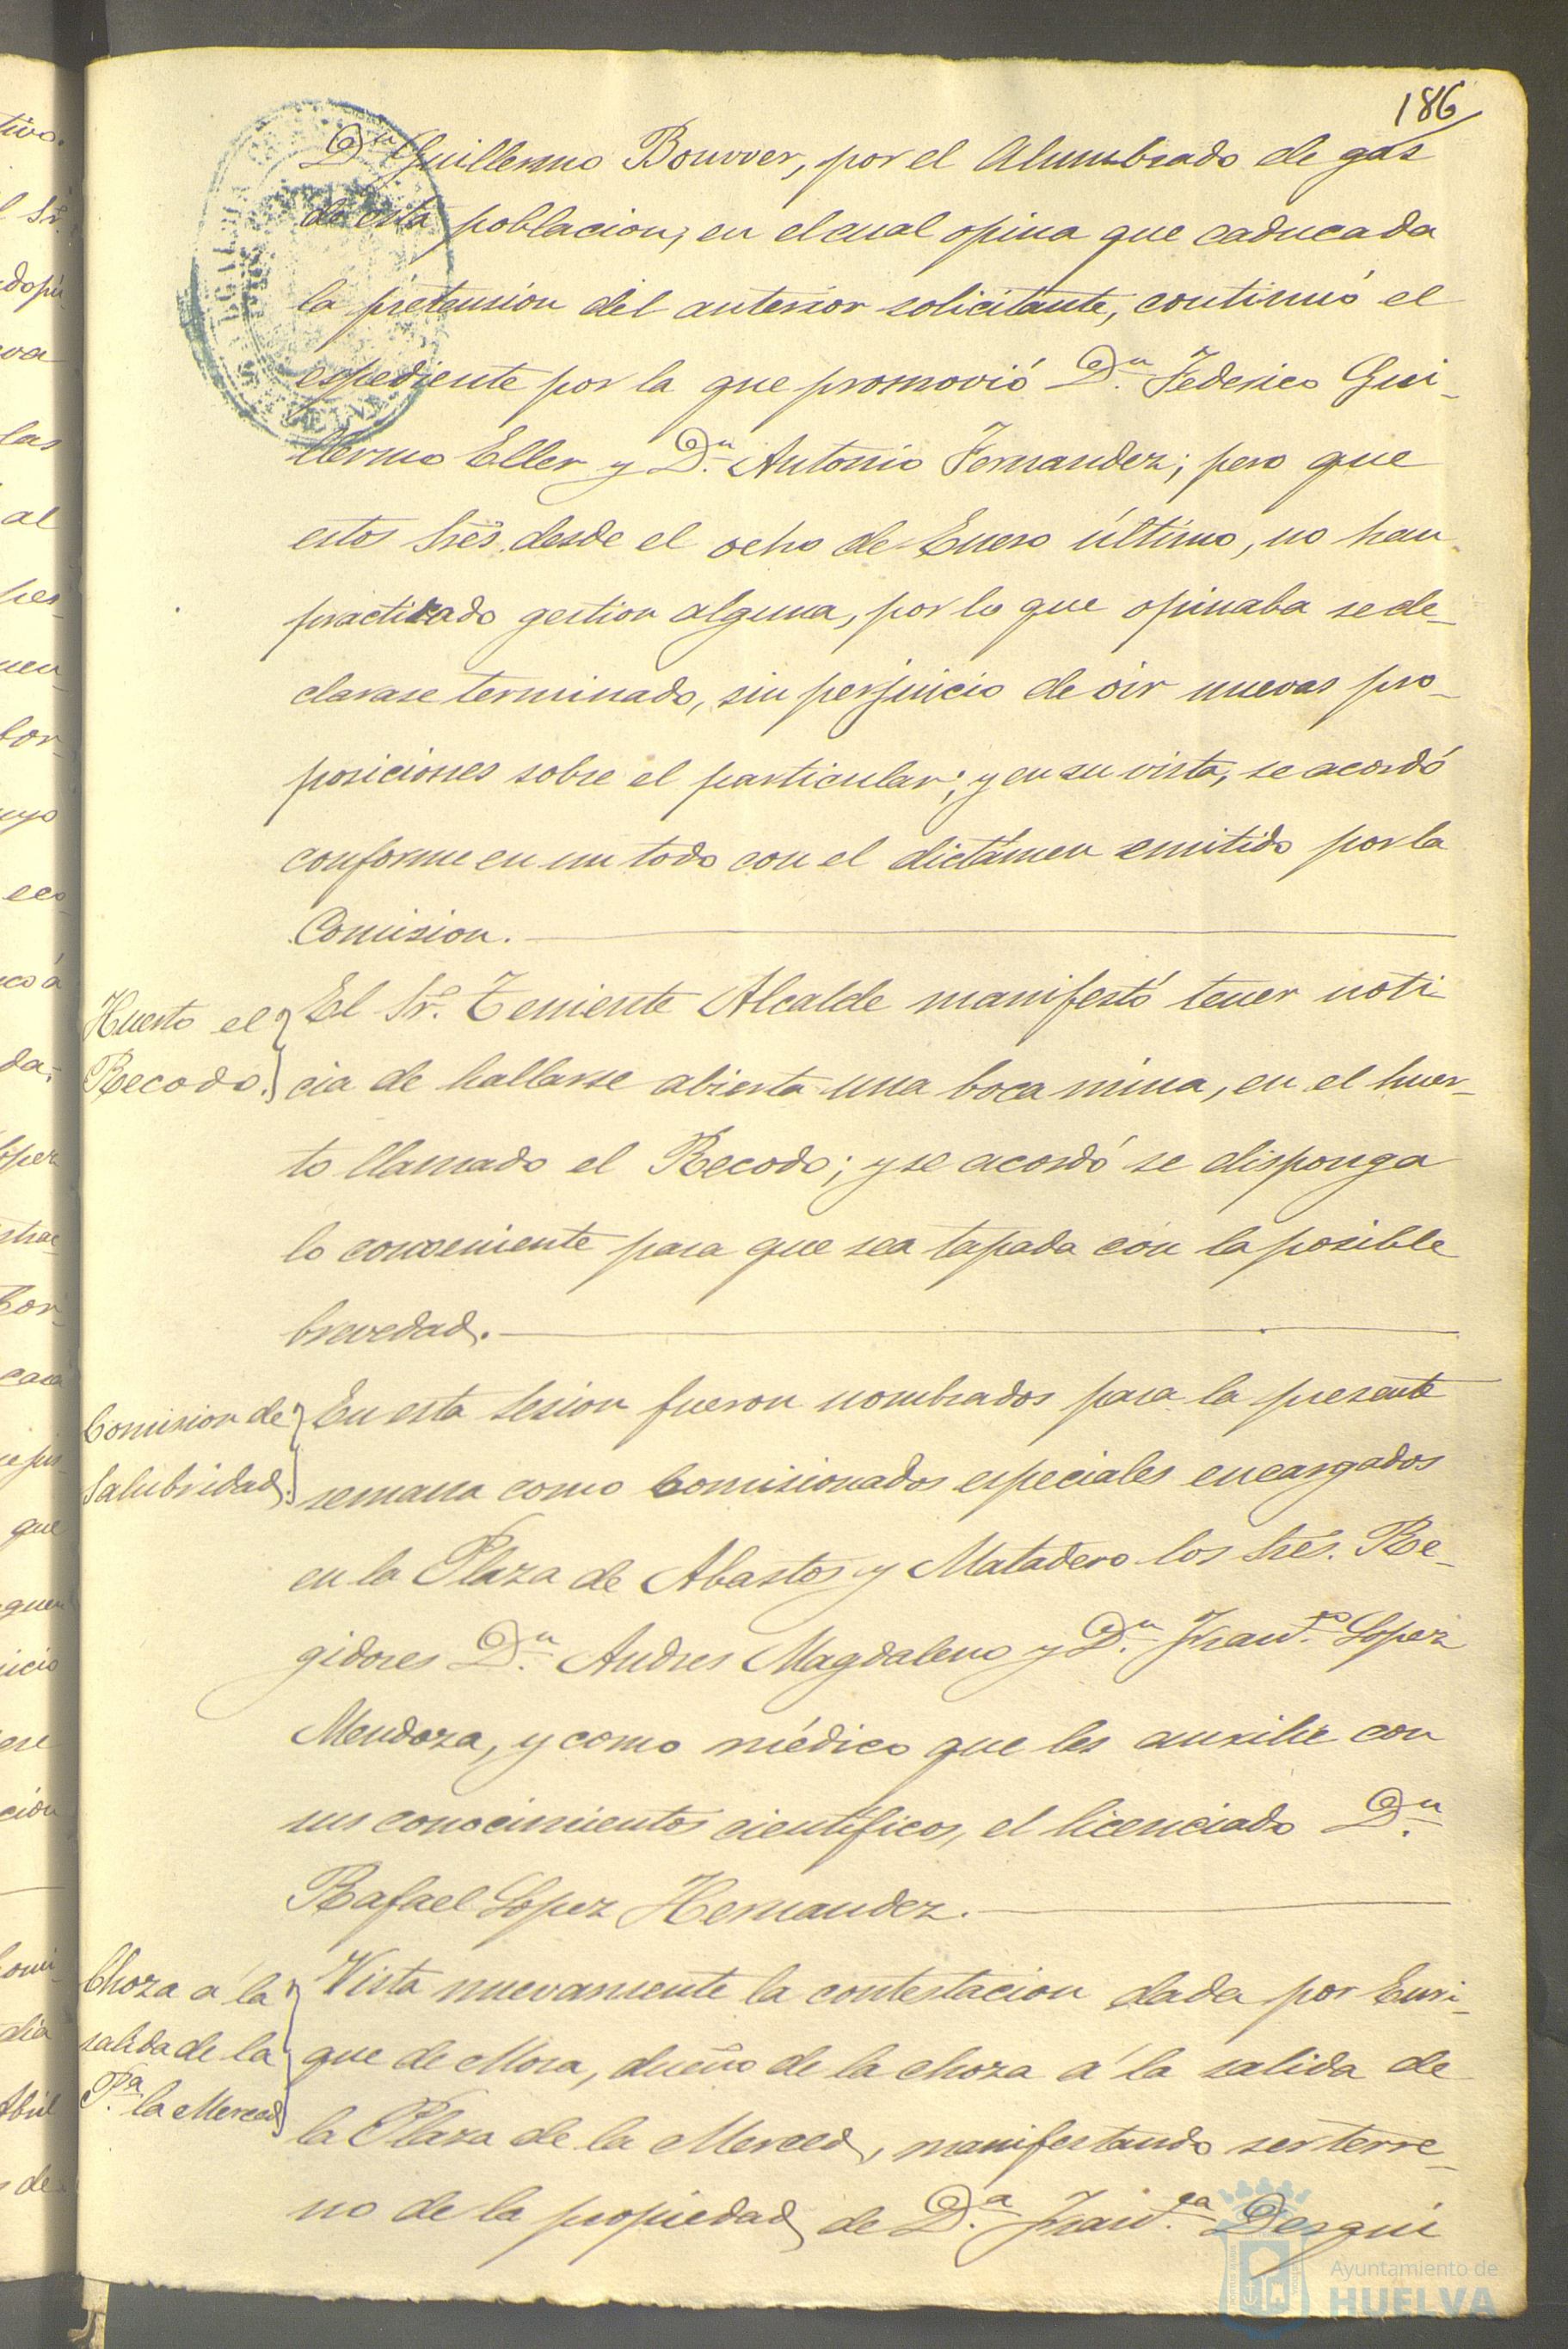 186
Dn Guillermo Bouvver, por el Alumbrado de gas
de esta poblacion, en el cual opina que caducada
la pretension del anterior solicitante, continuó el
espediente por la que promovió Dn. Federico Gui-
llermo Eller y Dn. Antonio Fernandez; pero que
estos Srēs. desde el ocho de Enero último, no han
practicado gestion alguna, por lo que opinaba se de-
clarase terminado, sin perjuicio de oir nuevas pro-
posiciones sobre el particular; y en su vista, se acordó
conforme en un todo con el dictámen emitido por la
Comision.
Huerto el
Recodo.
El Sr. Teniente Alcalde manifestó tener noti-
cia de hallarse abierta una boca mina, en el huer-
to llamado el Recodo; y se acordó se disponga
lo conveniente para que sea tapada con la posible
brevedad.
Comision de
Salubridad.
En esta sesion fueron nombrados para la presente
semana como Comisionados especiales encargados
en la Plaza de Abastos y Matadero los Srēs. Re-
gidores Dn. Andres Magdaleno y Dn. Franco. Lopez
Mendoza, y como médico que les auxilie con
sus conocimientos científicos, el licenciado Dn.
Rafael Lopez Hernandez.
Choza á la
salida de la
Pa. la Merced
Vista nuevamente la contestacion dada por Enri-
que de Mora, dueño de la choza á la salida de
la Plaza de la Merced, manifestando ser terre-
no de la propiedad de Da. Franca. Desgui
Ayuntamiento de
HUELVA